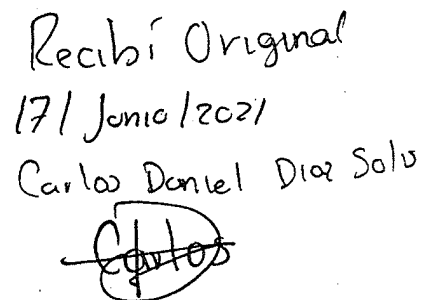 Recibí Original
17/Junio/2021
Carlos Daniel Diaz Solis
Carlos